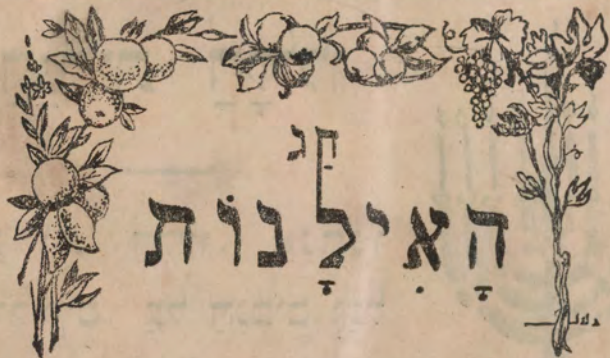 חַג
הָאִילָנוֹת